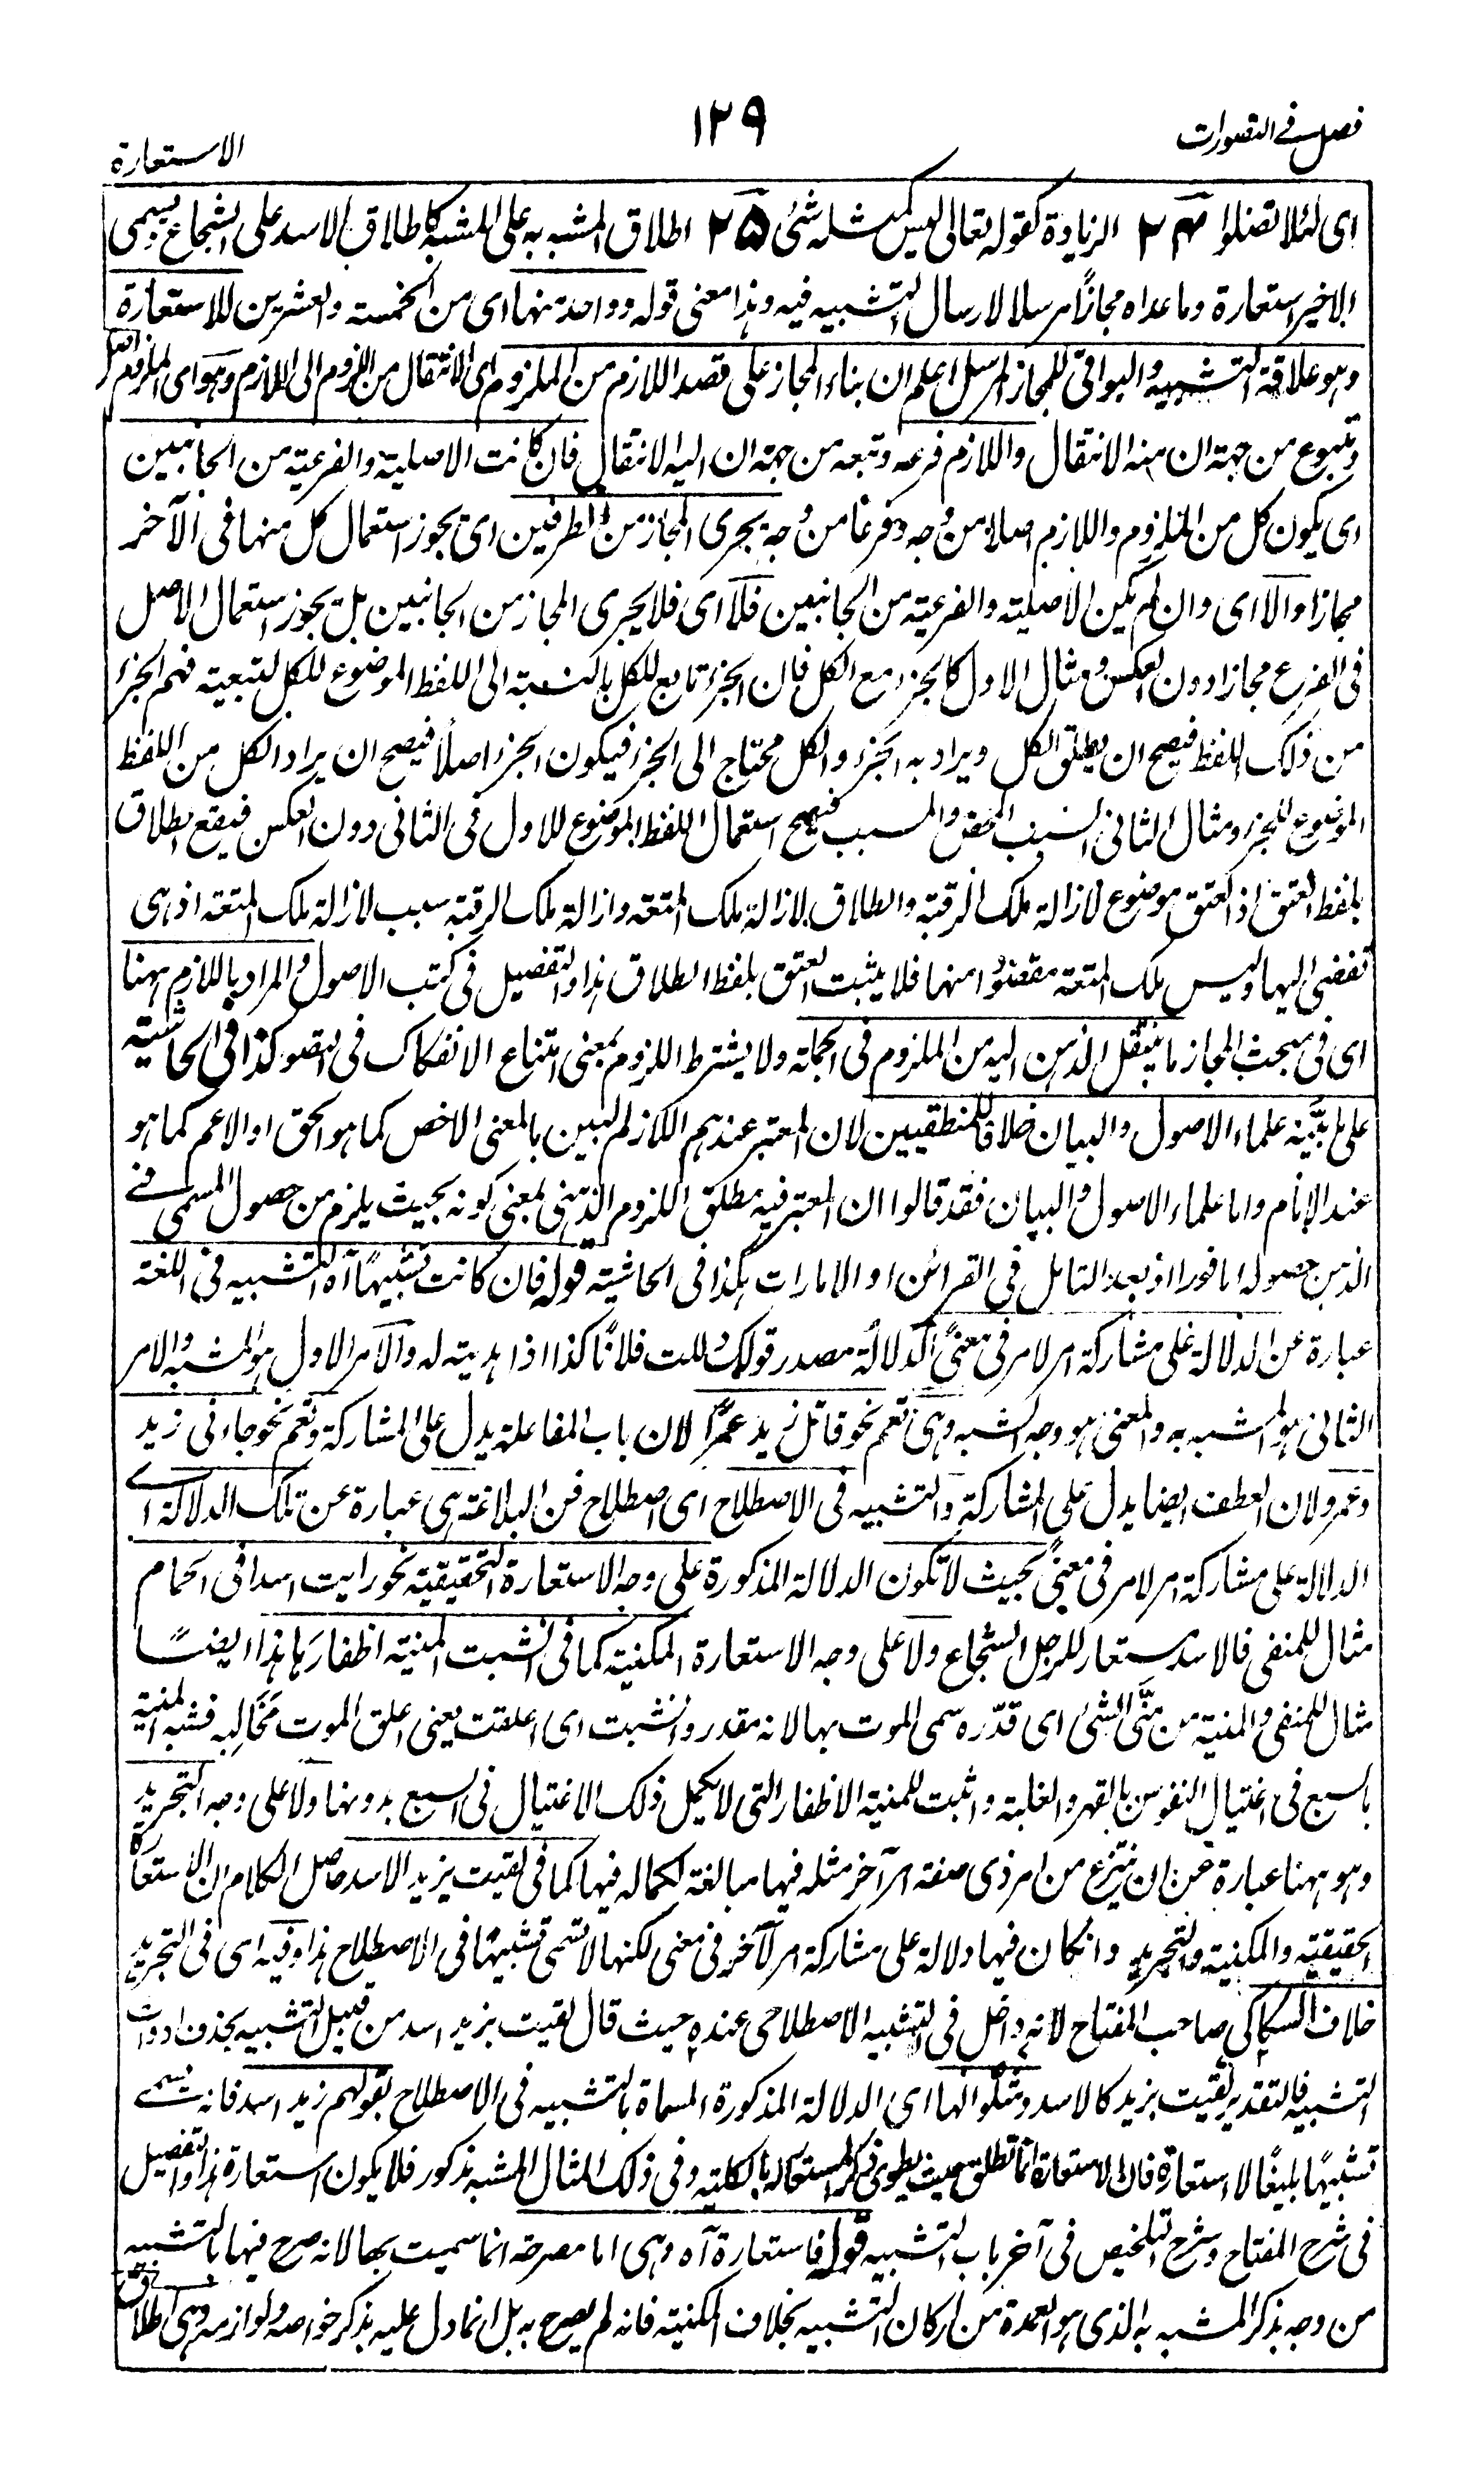 فصل فی التصورات
۱۲۹
الاستعارة
ای لئلا تضلوا ۲۴ الزیادة کقوله تعالی لیس کمثله شئ ۲۵ اطلاق المشبه به علی المشبه کاطلاق الاسد علی الشجاع ویسمی
الاخیر استعارة وما عداه مجازًا مرسلا لارسال التشبیه فیه وهذا معنی قوله وواحدة منها ای من الخمسة والعشرین للاستعارة
وهو علاقة التشبیه والبواقی للمجاز المرسل اعلم ان بناء المجاز علی قصد اللازم من الملزوم ای الانتقال من الملزوم الی اللازم وهو ای الملزوم اصل
ومتبوع من جهة ان منه الانتقال واللازم فرعه وتبعه من جهة ان الیه الانتقال فان کانت الاصلیة والفرعیة من الجانبین
ای یکون کل من الملزوم واللازم اصلا من وجه وفرعًا من وجه یجری المجاز من الطرفین ای یجوز استعمال کل منها فی الآخر
مجازا والا ای وان لم یکن الاصلیة والفرعیة من الجانبین فلا ای فلا یجری المجاز من الجانبین بل یجوز استعمال الاصل
فی الفرع مجازا دون العکس ومثال الاول کالجزء مع الکل فان الجزء تابع للکل بالنسبة الی اللفظ الموضوع للکل لتبعیة فهم الجزء
من ذلک اللفظ فیصح ان یطلق الکل ویراد به الجزء والکل محتاج الی الجزء فیکون الجزء اصلاً فیصح ان یراد الکل من اللفظ
الموضوع للجزء ومثال الثانی السبب المحض والمسبب فیصح استعمال اللفظ الموضوع للاول فی الثانی دون العکس فیقع الطلاق
بلفظ العتق اذ العتق موضوع لازالة ملک الرقبة والطلاق لازالة ملک المتعة وازالة ملک الرقبة سبب لازالة ملک المتعة اذ هی
تفضی الیها ولیس ملک المتعة مقصودًا منها فلا یثبت العتق بلفظ الطلاق هذا والتفصیل فی کتب الاصول والمراد باللازم ههنا
ای فی مبحث المجاز ما ینتقل الذهن الیه من الملزوم فی الجملة ولا یشترط اللزوم بمعنی امتناع الانفکاک فی التصور کذا فی الحاشیة
علی ما بیّنه علماء الاصول والبیان خلافًا للمنطقیین لان المعتبر عندهم اللازم البین بالمعنی الاخص کما هو الحق او الاعم کما هو
عند الامام واما علماء الاصول والبیان فقد قالوا ان المعتبر فیه مطلق اللزوم الذهنی بمعنی کونه بحیث یلزم من حصول المسمی فی
الذهن حصوله اما فورا او بعد التامل فی القرائن او الامارات هکذا فی الحاشیة قوله فان کانت تشبیهًا آه التشبیه فی اللغة
عبارة عن الدلالة علی مشارکة امر لامر فی معنیً الدلالة مصدر قولک دللت فلانًا کذا اذا هدیته له والامر الاول هو المشبه والامر
الثانی هو المشبه به والمعنی هو وجه الشبه وهی تعم نحو قاتل زید عمرًا لان باب المفاعلة یدل علی المشارکة وتعم نحو جاءنی زید
وعمرو لان العطف ایضا یدل علی المشارکة والتشبیه فی الاصطلاح ای اصطلاح فن البلاغة هی عبارة عن تلک الدلالة ای
الدلالة علی مشارکة امر لامر فی معنیً بحیث لا تکون الدلالة المذکورة علی وجه الاستعارة التحقیقیة نحو رایت اسدا فی الحمام
مثال للمنفی فالاسد مستعار للرجل الشجاع ولا علی وجه الاستعارة المکنیة کما فی انشبت المنیة اظفارَها هذا ایضًا
مثال للمنفی والمنیة من مَنَّی الشئ ای قدّره سمی الموت بها لانه مقدر وانشبت ای اعلقت یعنی اعلق الموت مَخَالِبه فشبه المنیة
بالسبع فی اغتیال النفوس بالقهر والغلبة واثبت للمنیة الاظفار التی لا یکمل ذلک الاغتیال فی السبع بدونها ولا علی وجه التجرید
وهو ههنا عبارة عن ان ینتزع من امر ذی صفة امر آخر مثله فیها مبالغة لکماله فیها کما فی لقیت بزید الاسد حاصل الکلام ان الاستعارة
الحقیقیة والمکنیة والتجرید وان کان فیها دلالة علی مشارکة امر لآخر فی معنی لکنها لا تسمی تشبیهًا فی الاصطلاح هذا وفیه ای فی التجرید
خلاف السکاکی صاحب المفتاح لانه داخل فی التشبیه الاصطلاحی عنده حیث قال لقیت بزید اسد من قبیل التشبیه بحذف ادوات
التشبیه فالتقدیر لقیت بزید کالاسد ومثّلوا لها ای الدلالة المذکورة المسماة بالتشبیه فی الاصطلاح بقولهم زید اسد فانه یسمی
تشبیهًا بلیغًا لا استعارة فان الاستعارة انما تطلق حیث یطوی ذکر المستعار له بالکلیة وفی ذلک المثال المشبه مذکور فلا یکون استعارة هذا والتفصیل
فی شرح المفتاح وشرح التلخیص فی آخر باب التشبیه قوله فاستعارة آه وهی اما مصرحة انما سمیت بها لانه صرح فیها بالتشبیه
من وجه بذکر المشبه به الذی هو العمدة من ارکان التشبیه بخلاف المکنیة فانه لم یصرح به بل انما دل علیه بذکر خواصه ولوازمه وهی اطلاق